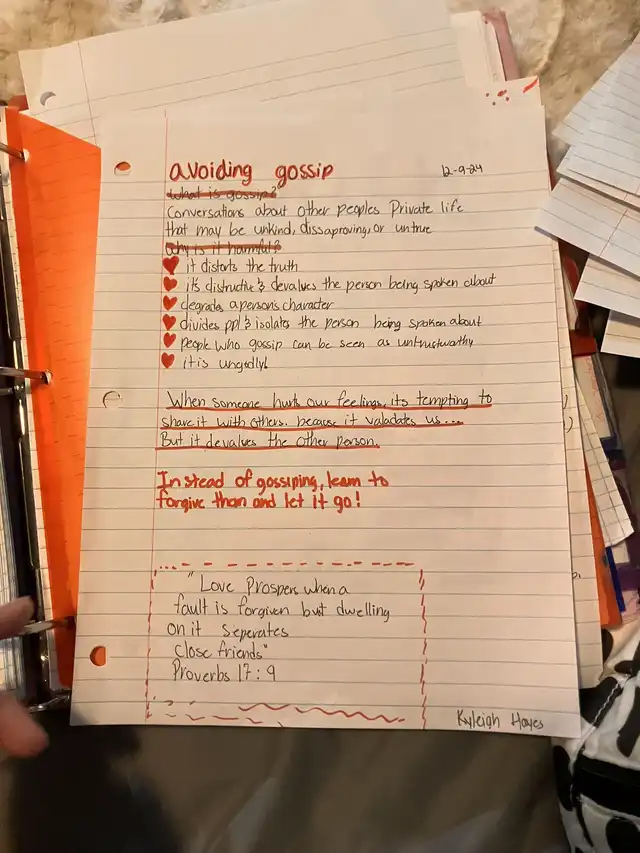 avoiding gossip
12-9-24
What is gossip?
Conversations about other peoples Private life
that may be unkind, dissaproving, or untrue
Why is it harmful?
it distorts the truth
it's distructive & devalues the person being spoken about
degrades a person's character
divides ppl & isolates the person being spoken about
people who gossip can be seen as untrustworthy
it is ungodly!
When someone hurts our feelings, its tempting to
share it with others. because it valadates us...
But it devalues the other person.
Instead of gossiping, learn to
forgive than and let it go!
"Love Prospers when a
fault is forgiven but dwelling
on it seperates
close friends"
Proverbs 17:9
Kyleigh Hayes